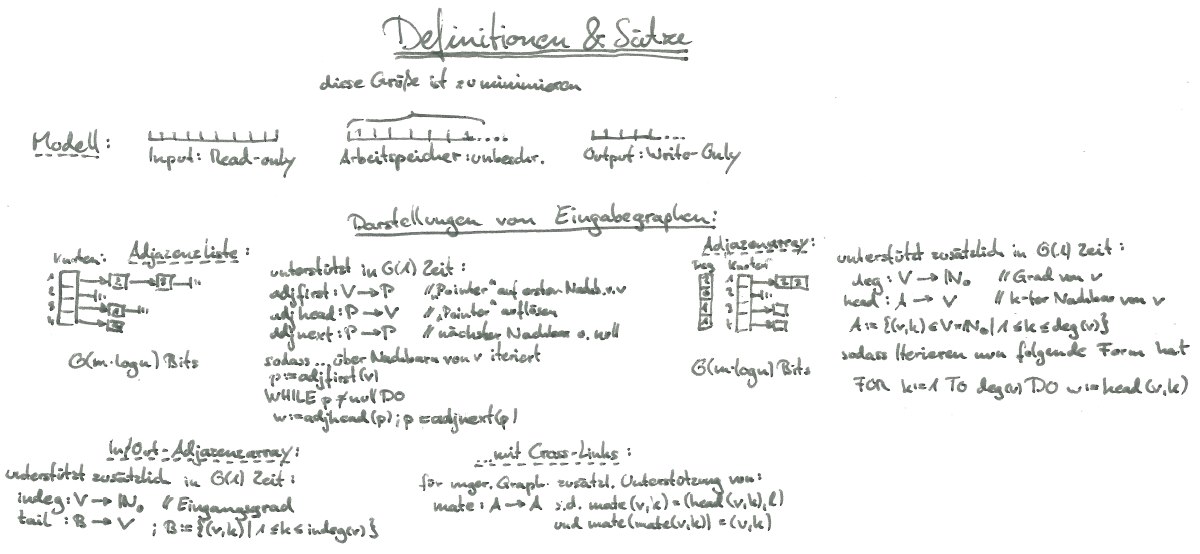 Definitionen & Sätze
diese Größe ist zu minimieren
Modell:
Input: Read-only
Arbeitspeicher: unbeschr.
Output: Write-Only
Darstellungen von Eingabegraphen:
Adjazenzliste:
Knoten:
1
2
3
4
Θ(m·logn) Bits
unterstützt in Θ(1) Zeit:
adjfirst: V → P // "Pointer" auf ersten Nachb. v. v
adjhead: P → V // "Pointer" auflösen
adjnext: P → P // nächster Nachbar o. null
sodass ... über Nachbarn von v iteriert
p := adjfirst(v)
WHILE p ≠ null DO
w := adjhead(p); p = adjnext(p)
Adjazenarray:
Deg Knoten
1
2
3
4
Θ(m·logn) Bits
unterstützt zusätzlich in Θ(1) Zeit:
deg: V → ℕ₀ // Grad von v
head: A → V // k-ter Nachbar von v
A := {(v,k) ∈ V×ℕ₀ | 1 ≤ k ≤ deg(v)}
sodass Iterieren nun folgende Form hat
FOR k:=1 TO deg(v) DO w := head(v,k)
In/Out-Adjazenzarray:
unterstützt zusätzlich in Θ(1) Zeit:
indeg: V → ℕ₀ // Eingangsgrad
tail: B → V ; B := {(v,k) | 1 ≤ k ≤ indeg(v)}
...mit Cross-Links:
für unger. Graph. zusätzl. Unterstützung von:
mate: A → A s.d. mate(v,k) = (head(v,k), l)
und mate(mate(v,k)) = (v,k)